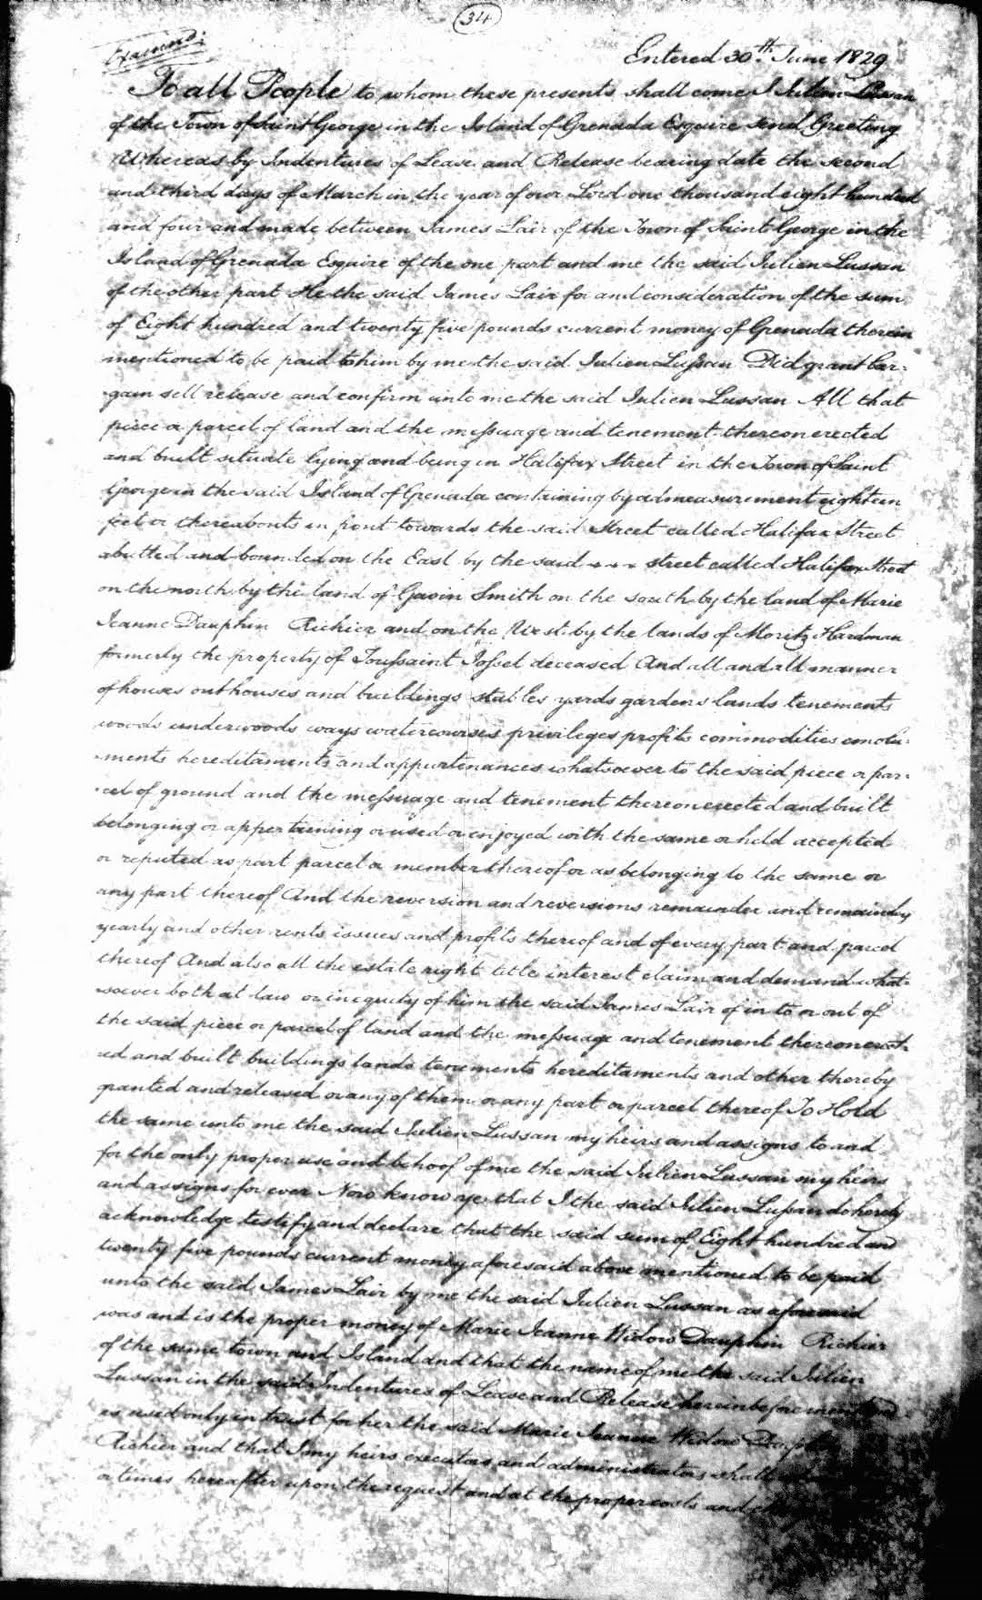 34
Examined:
Entered 30th June 1829
To all People to whom these presents shall come I Julien Lussan
of the Town of Saint George in the Island of Grenada Esquire send Greeting
Whereas by Indentures of Lease and Release bearing date the second
and third days of March in the year of our Lord one thousand eight hundred
and four and made between James Lair of the Town of Saint George in the
Island of Grenada Esquire of the one part and me the said Julien Lussan
of the other part He the said James Lair for and consideration of the sum
of Eight hundred and twenty five pounds current money of Grenada therein
mentioned to be paid to him by me the said Julien Lussan Did grant bar-
gain sell release and confirm unto me the said Julien Lussan All that
piece or parcel of land and the messuage and tenement thereon erected
and built situate lying and being in Halifax Street in the Town of Saint
George in the said Island of Grenada containing by admeasurement eighteen
feet or thereabouts in front towards the said Street called Halifax Street
abutted and bounded on the East by the said street called Halifax Street
on the north by the land of Gavin Smith on the south by the land of Marie
Jeanne Dauphin Richier and on the West by the lands of Moritz Hardman
formerly the property of Toussaint Jossel deceased And all and all manner
of houses outhouses and buildings stables yards gardens lands tenements
woods underwoods ways watercourses privileges profits commodities emolu-
-ments hereditaments and appurtenances whatsoever to the said piece or par-
-cel of ground and the messuage and tenement thereon erected and built
belonging or appertaining or used or enjoyed with the same or held accepted
or reputed as part parcel or member thereof or as belonging to the same or
any part thereof And the reversion and reversions remainder and remainders
yearly and other rents issues and profits thereof and of every part and parcel
thereof And also all the estate right title interest claim and demand what-
-soever both at law or in equity of him the said James Lair of in to or out of
the said piece or parcel of land and the messuage and tenement thereon erect-
ed and built buildings lands tenements hereditaments and other thereby
granted and released or any of them or any part or parcel thereof To Hold
the same unto me the said Julien Lussan my heirs and assigns to and
for the only proper use and behoof of me the said Julien Lussan my heirs
and assigns for ever Now know ye that I the said Julien Lussan do hereby
acknowledge testify and declare that the said sum of Eight hundred and
twenty five pounds current money aforesaid above mentioned to be paid
unto the said James Lair by me the said Julien Lussan as aforesaid
was and is the proper money of Marie Jeanne Widow Dauphin Richier
of the same town and Island and that the name of me the said Julien
Lussan in the said Indentures of Lease and Release herein before mentioned
is used only in trust for her the said Marie Jeanne Widow Dauphin
Richier and that I my heirs executors and administrators shall
or times hereafter upon the request and at the proper costs and